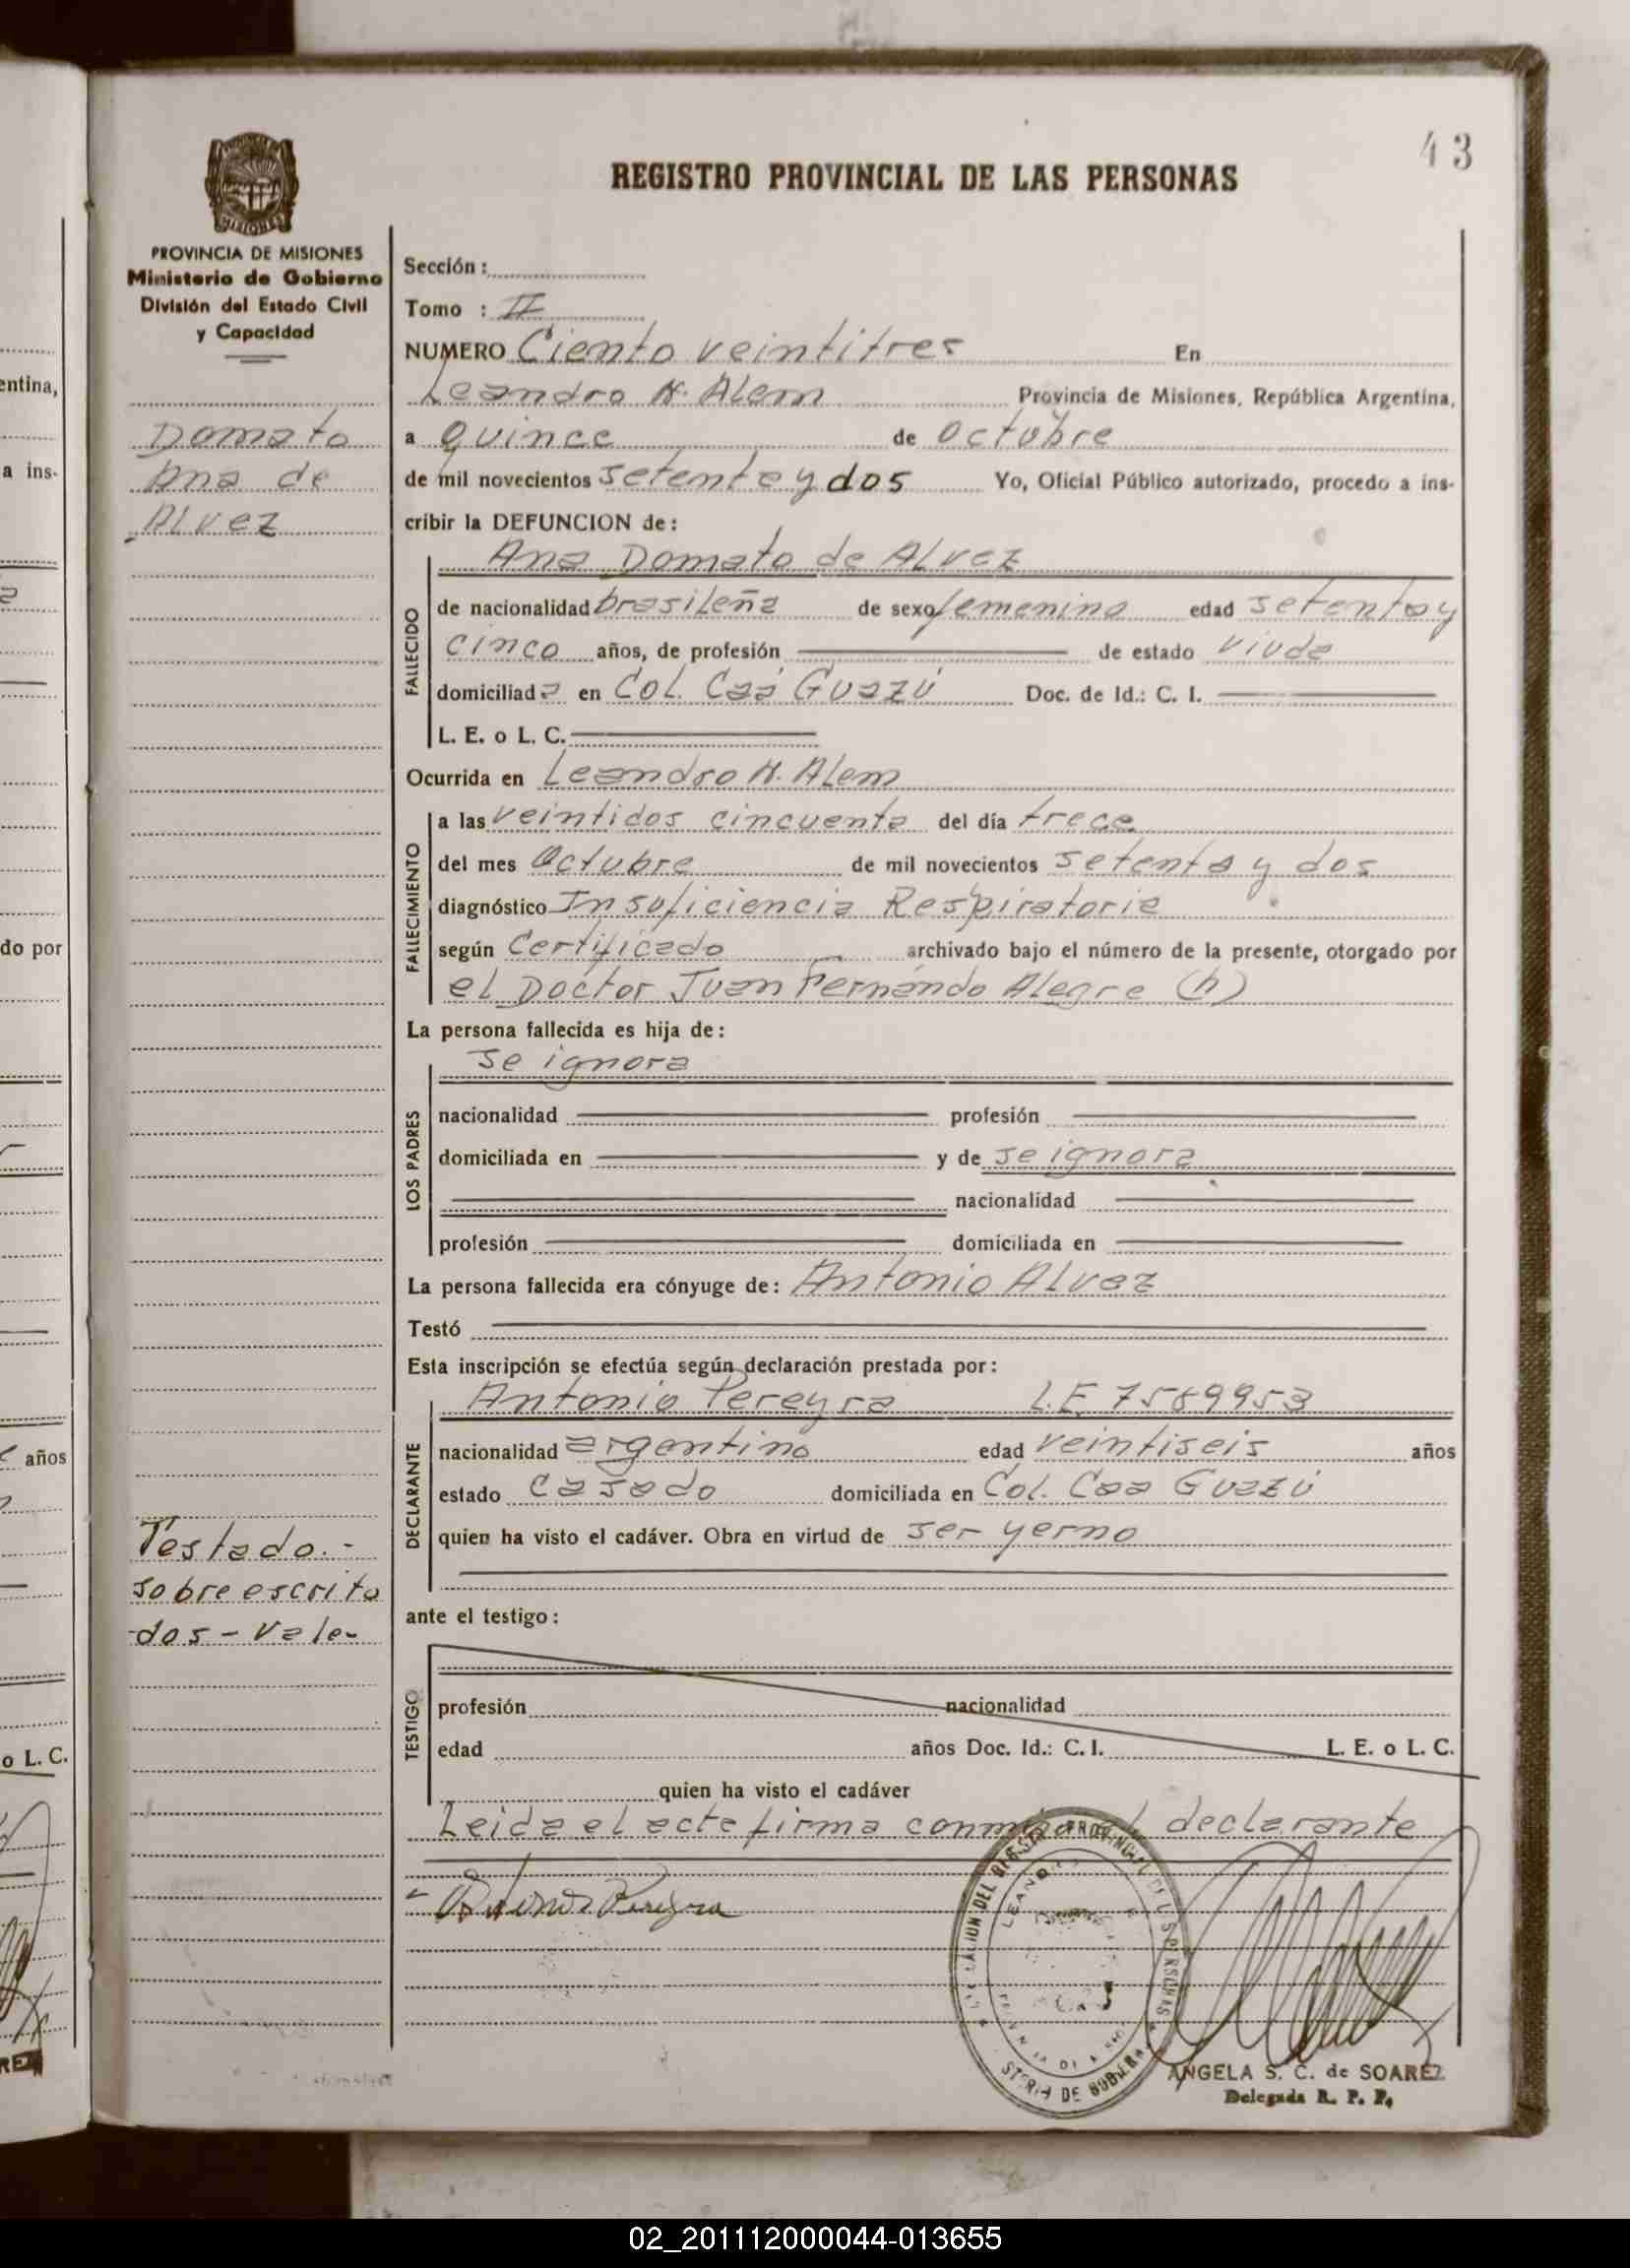 43
REGISTRO PROVINCIAL DE LAS PERSONAS
MISIONES
PROVINCIA DE MISIONES
Ministerio de Gobierno
División del Estado Civil
y Capacidad
Domato
Ana de
Alvez
Sección :
Tomo : II
NUMERO Ciento veintitres En
Leandro N. Alem Provincia de Misiones, República Argentina,
a quince de Octubre
de mil novecientos setenta y dos Yo, Oficial Público autorizado, procedo a ins-
cribir la DEFUNCION de :
Ana Domato de Alvez
FALLECIDO
de nacionalidad brasileña de sexo femenino edad setenta y
cinco años, de profesión de estado viuda
domiciliada en Col. Caá Guazú Doc. de Id.: C. I.
L. E. o L. C.
Ocurrida en Leandro N. Alem
FALLECIMIENTO
a las veintidos cincuenta del día trece
del mes Octubre de mil novecientos setenta y dos
diagnóstico Insuficiencia Respiratoria
según Certificado archivado bajo el número de la presente, otorgado por
el Doctor Juan Fernando Alegre (h)
La persona fallecida es hija de :
se ignora
LOS PADRES
nacionalidad profesión
domiciliada en y de se ignora
nacionalidad
profesión domiciliada en
La persona fallecida era cónyuge de : Antonio Alvez
Testó
Esta inscripción se efectúa según declaración prestada por :
Antonio Pereyra L.E. 7589953
DECLARANTE
nacionalidad argentino edad veintiseis años
estado casado domiciliada en Col. Caa Guazú
quien ha visto el cadáver. Obra en virtud de ser yerno
Testado.-
sobreescrito
dos - Vale-
ante el testigo :
TESTIGO
profesión nacionalidad
edad años Doc. Id.: C. I. L. E. o L. C.
quien ha visto el cadáver
Leida el acta firma conmigo el declarante
Antonio Pereyra
ANGELA S. C. de SOAREZ
Delegada R. P. P.
entina,
a ins-
do por
años
o L. C.
REZ
02_201112000044-013655